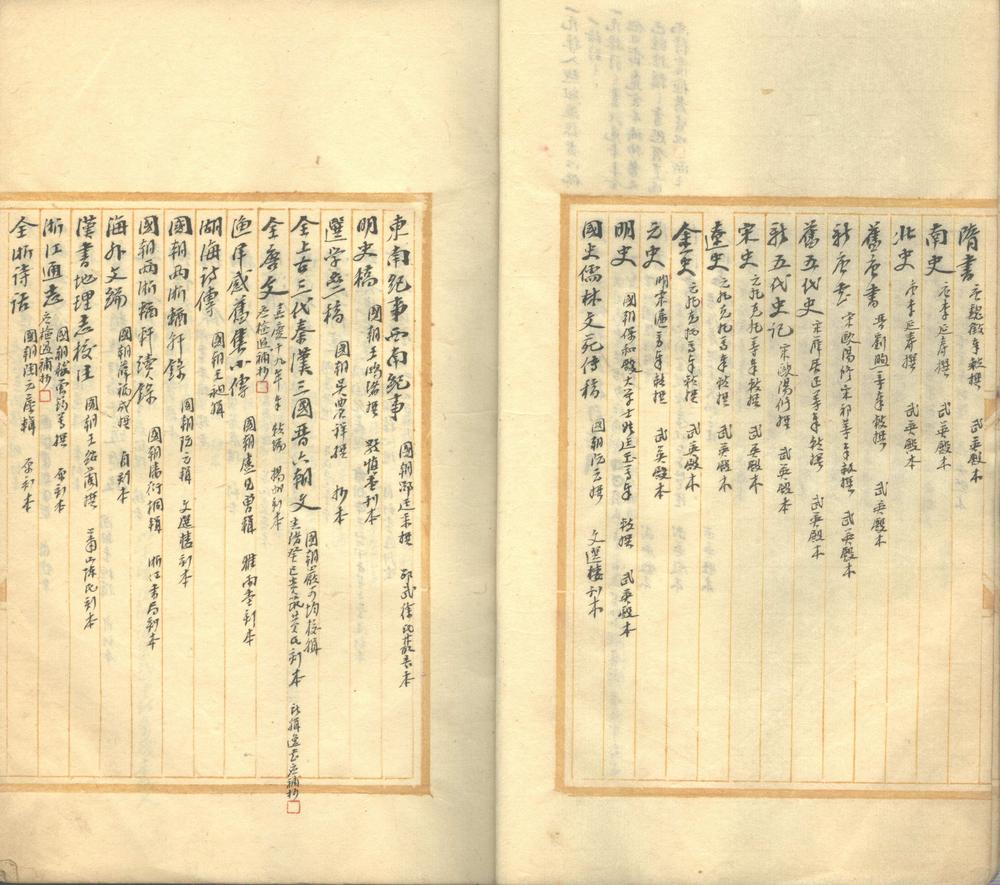 隋書 唐魏徵等敕撰 武英殿本
南史 唐李延壽撰 武英殿本
北史 唐李延壽撰 武英殿本
舊唐書 晋劉昫等奉敕撰 武英殿本
新唐書 宋歐陽修宋祁等奉敕撰 武英殿本
舊五代史 宋薛居正等奉敕撰 武英殿本
新五代史記 宋歐陽修撰 武英殿本
宋史 元托克托等奉敕撰 武英殿本
遼史 元托克托等奉敕撰 武英殿本
金史 元托克托等奉敕撰 武英殿本
元史 明宋濂等奉敕撰 武英殿本
明史 國朝保和殿大學士張廷玉等奉敕撰 武英殿本
國史儒林文苑傳稿 國朝阮元撰 文選樓刊本
東南紀事西南紀事 國朝邵廷采撰 邵武徐氏叢書本
明史稿 國朝王鴻緒撰 敬慎堂刊本
選學 稿 國朝吳 祥撰 抄本
全上古三代秦漢三國晋六朝文 國朝嚴可均校輯 光緒癸巳黄岡黄氏刊本 新輯逸書应補抄
全唐文 嘉慶十九年奉敕編 揚州刊本 应檢返補抄
漁洋感舊集小傳 國朝盧見曾輯 雅雨堂刊本
湖海詩傳 國朝王昶輯
國朝兩浙輶軒錄 國朝阮元輯 文選樓刊本
國朝兩浙輶軒續錄 國朝潘衍桐輯 浙江書局刊本
海外文編 國朝薛福成撰 自刊本
漢書地理志校注 國朝王紹蘭撰 蕭山陳氏刊本
浙江通志 國朝嵇曾筠等撰 原刊本 应檢返補抄
全浙詩話 國朝陶元藻輯 原刊本